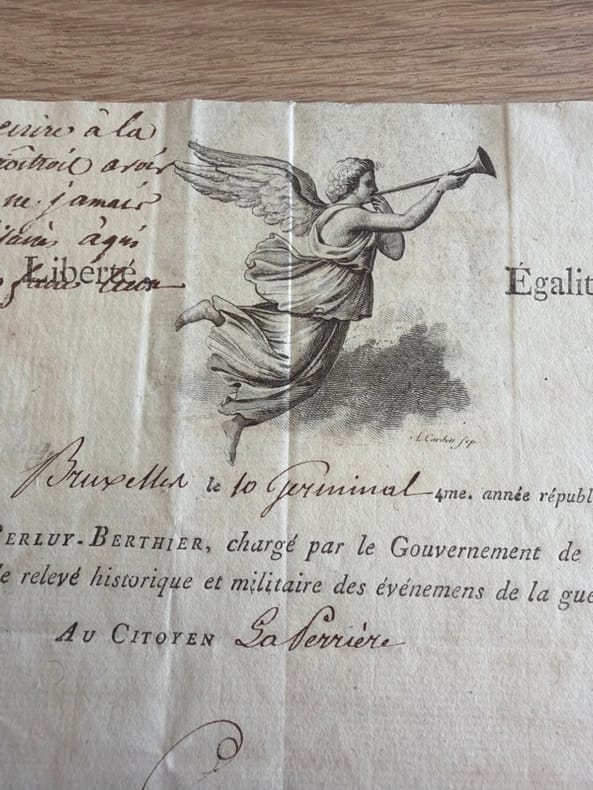 à la
avoir
ne jamais
Liberté.
Égalit
Bruxelles le 10 Germinal 4me. année républ
ERLUY-BERTHIER, chargé par le Gouvernement de
le relevé historique et militaire des événemens de la gue
AU CITOYEN LaPerrière